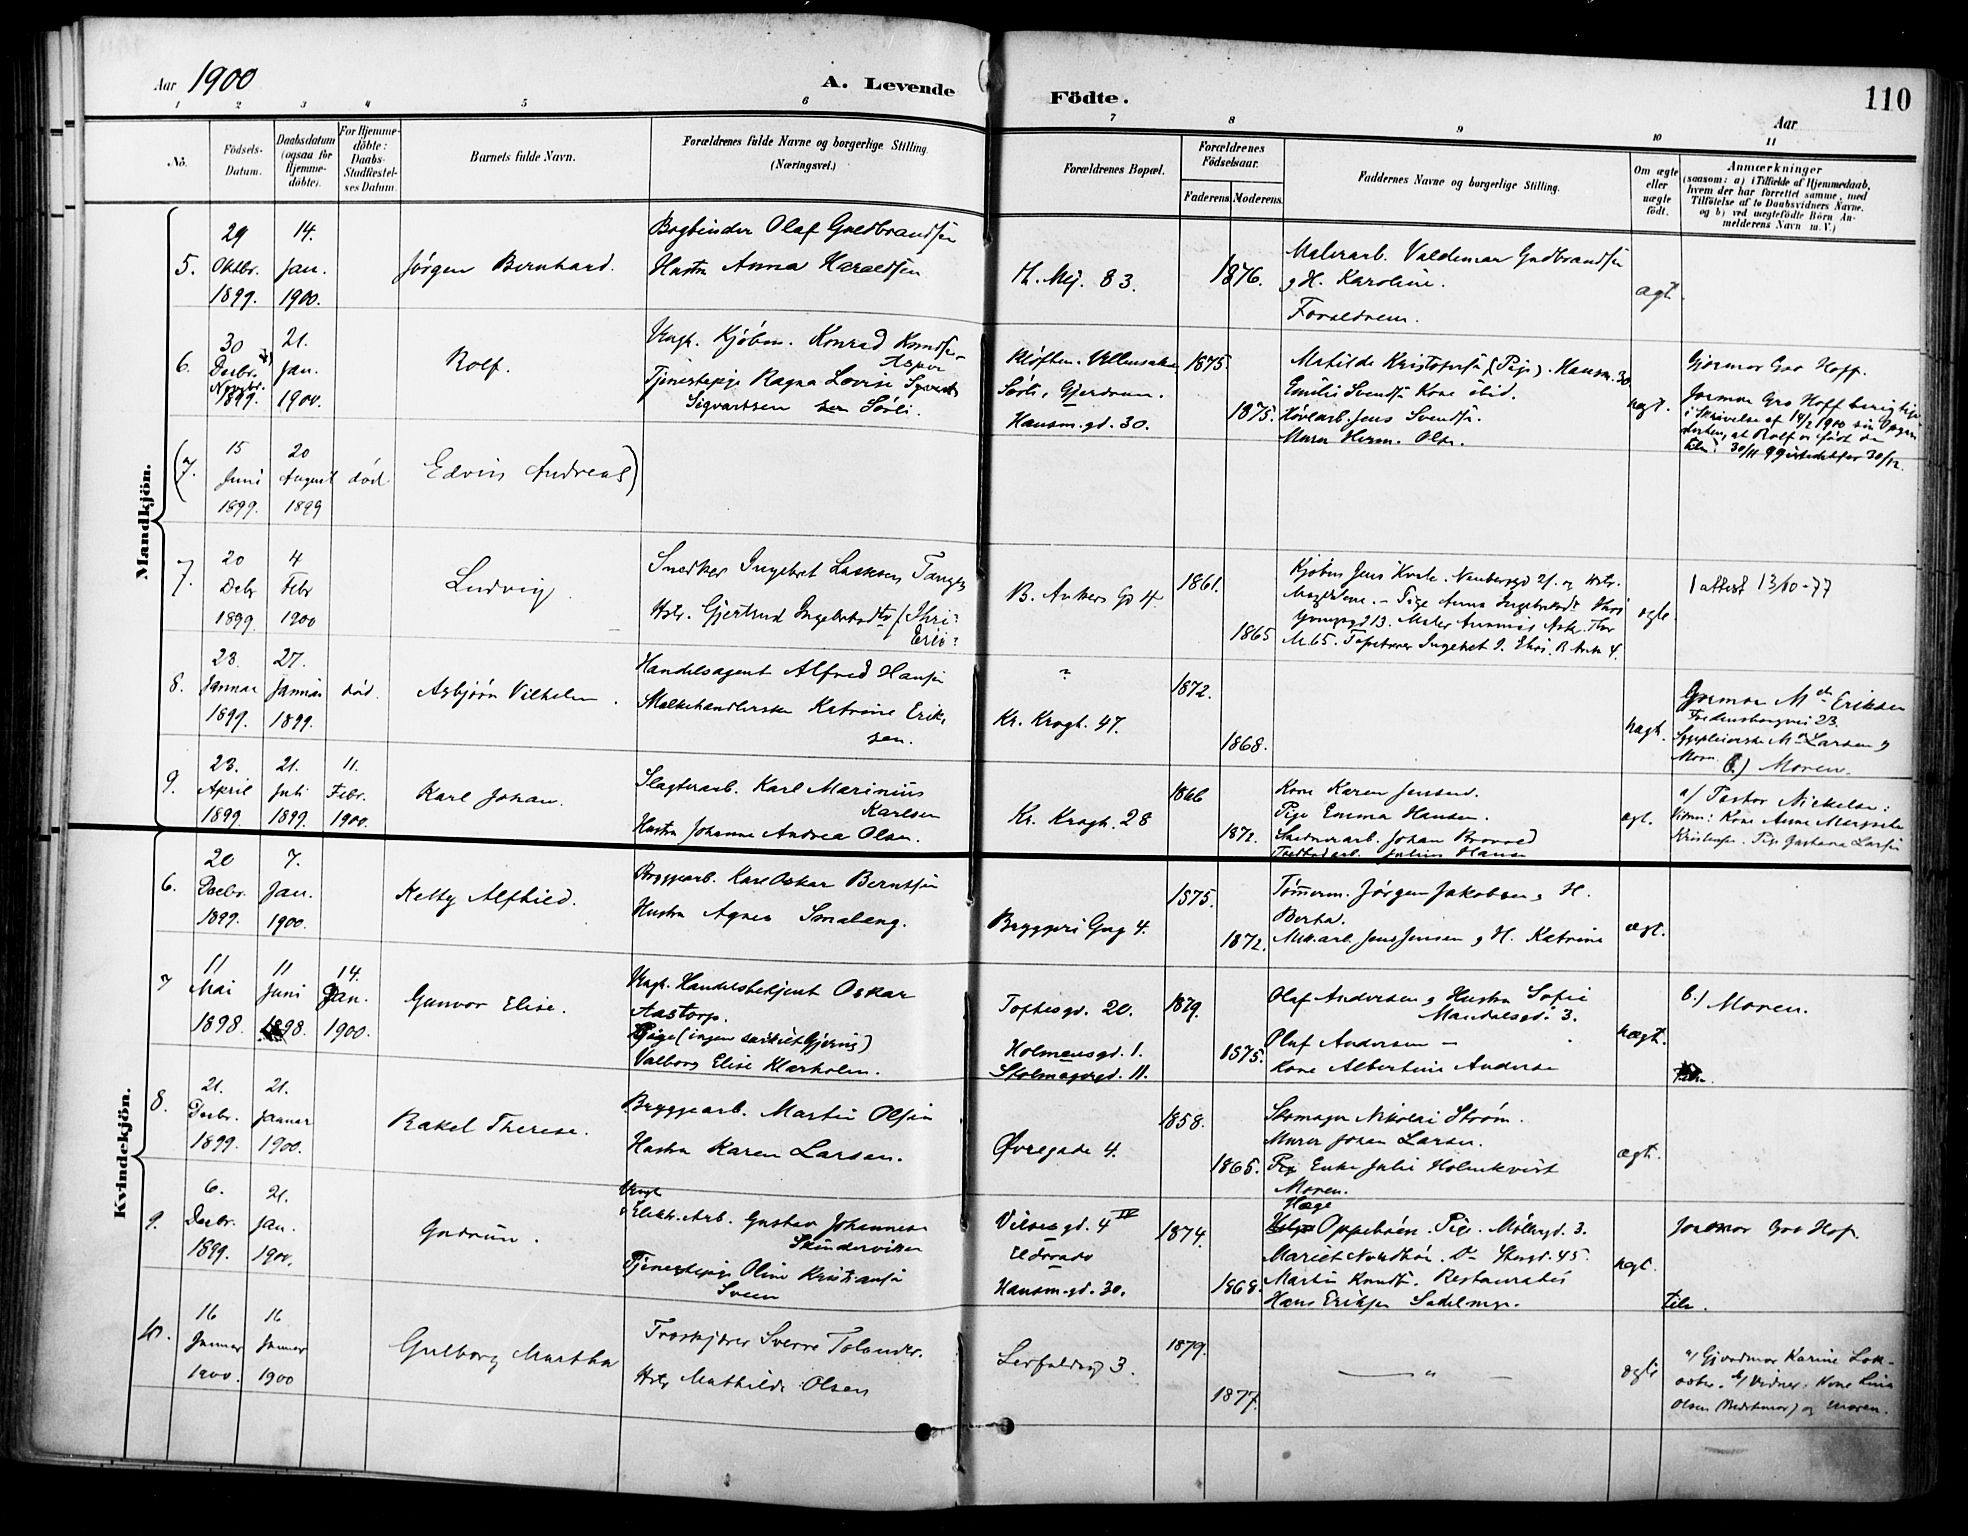 Aar 1900
A. Levende
Födte.
110
Aar
1 2 3 4 5 6 7 8 9 10 11
No.
Födsels-
Datum.
Daabsdatum
(ogsaa for
Hjemme-
döbte).
For Hjemme-
döbte:
Daabs-
Stadfæstel-
ses Datum.
Barnets fulde Navn.
Forældrenes fulde Navne og borgerlige Stilling
(Næringsvei.)
Forældrenes Bopæl.
Forældrenes
Födselsaar.
Faderens.
Moderens.
Faddernes Navne og borgerlige Stilling.
Om ægte
eller
uægte
födt.
Anmærkninger
(saasom: a) i Tilfælde af Hjemmedaab,
hvem der har forrettet samme, med
Tilföielse af to Daabsvidners Navne.
og b) ved uægtefödte Börn An-
melderens Navn m. V.)
Mandkjön.
5.
29
Oktbr.
1899.
14.
Jan.
1900.
Jørgen Bernhard.
Bogbinder Olaf Gudbrandsen
Hustru Anna Haraldsen
Th. Mej. 83.
1876.
Malerarb. Valdemar Gudbrandsen
g H. Karoline.
Forældrene.
ægt.
6.
30
Decbr.
Novbr.
1899.
21.
Jan.
1900.
Rolf.
Ungk. Kjøbm. Konrad Knudsen
Asper
Tjenestepige Ragna Lovise
Sigvartsen Sørli.
Kløften. Ullensaker
Sørli, Gjerdrum.
Hausm.gd. 30.
1875.
1875.
Matilde Kristofersen (Pige). Hausm. 30
Emilie Svendsen Kone ibid.
Høvlarb. Jens Svendsen.
Murer Herm. Olsen.
uægt.
Gjormor Gro Hoff.
Jormor Gro Hoff
i Skrivelse af 14/2 1900 sin
at Rolf er født den
30/11 99 istedetfor 30/12.
(7.
15
Juni
1899.
20
August
1899
død.
Edvin Andreas)
7.
20
Decbr
1899.
4
Febr
1900
Ludvig.
Snedker Ingebret Larsen Tangen
Hstr. Gjertrud
B. Ankers Gd 4.
1861.
1865
Kjøbm Jens
Magdalene. — Pige Anna
M. 65. Tapetserer Ingebret
ægte
1 attest 13/10-77
8.
23.
Januar
1899.
27.
Januar
1899.
død.
Asbjørn Vilhelm.
Handelsagent Alfred Hansen
Melkehandlerske Katrine Erik-
sen.
"
Kr. Krogh. 47.
1872.
1868.
uægt.
Jormor Md Eriksen
Fredensborgvei 23.
Md Larsen g
Moren.
b.) Moren.
9.
23.
April
1899.
21.
Juli
1899.
11.
Febr.
1900.
Karl Johan.
Slagterarb. Karl Marinius
Karlsen
Hustru Johanne Andrea Olsen.
Kr. Krogh. 28
1866
1872.
Kone Karen Jensen.
Pige Emma Hansen.
Johan
Julius Hansen
ægt.
a/ Pastor Nickelsen:
Vidner: Kone Anne Margrete
Kristensen. Pige Gustava Larsen
Kvindekjön.
6.
20
Decbr.
1899.
7.
Jan.
1900.
Ketty Alfhild.
Bryggearb. Karl Oskar Berntsen
Hustru Agnes Smaleng.
Bryggeri Gag 4.
1875.
1872.
Tømmerm. Jørgen Jakobsen g H.
Berta.
Mek.arb. Jens Jensen g H. Katrine
ægt.
7
11
Mai
1898.
11
Juni
1898.
14.
Jan.
1900.
Gunvor Elise.
Ungk. Handelsbetjent Oskar
Aastorp.
Pige (ingen særskilt Gjerning)
Valborg Elise Klarholm.
Toftesgd. 20.
Holmensgd. 1.
Stolmagergd. 11.
1879.
1875.
Olaf Andersen g Hustru Sofie
Mandalsgd. 3.
Oluf Andersen — "
Kone Albertine Andersen
uægt.
b.) Moren.
8.
21.
Decbr.
1899.
21.
Januar
1900.
Rakel Therese.
Bryggearb. Martin Olsen
Hustru Karen Larsen.
Øvregade 4.
1858.
1865.
Skomager Nikolai Strøm.
Murer Johan Larsen.
Enke Julie Holmkvist
Moren.
ægt.
9.
6.
Decbr.
1899.
21.
Jan.
1900.
Gudrun.
Ungk.
Elektr. Arb. Gustav Johannesen
Skindervikken
Tjenestepige Oline Kristiansen
Sveen
Vibesgd. 4 IV
Eldorado
Hausm.gd. 30.
1874.
1868.
Hæge
Oppebøen. Pige. Møllergd. 3.
Mariet Nordbøe. Do Storgd. 45.
Martin Knudsen. Restauratør
Hans Eriksen Sadelmager.
uægt.
Jordmor Gro Hof.
tilv.
10.
16
Januar
1900.
16
Januar
1900
Gulborg Martha
Træskjærer Sverre Tolander.
Hstr Mathilde Olsen
Leirfaldsgd 3.
1879.
1877.
— " —
ægte
a/ Gjordmor Karine
b/ Vidner: Kone Lina
Olsen (Bedstemor) og Moren.